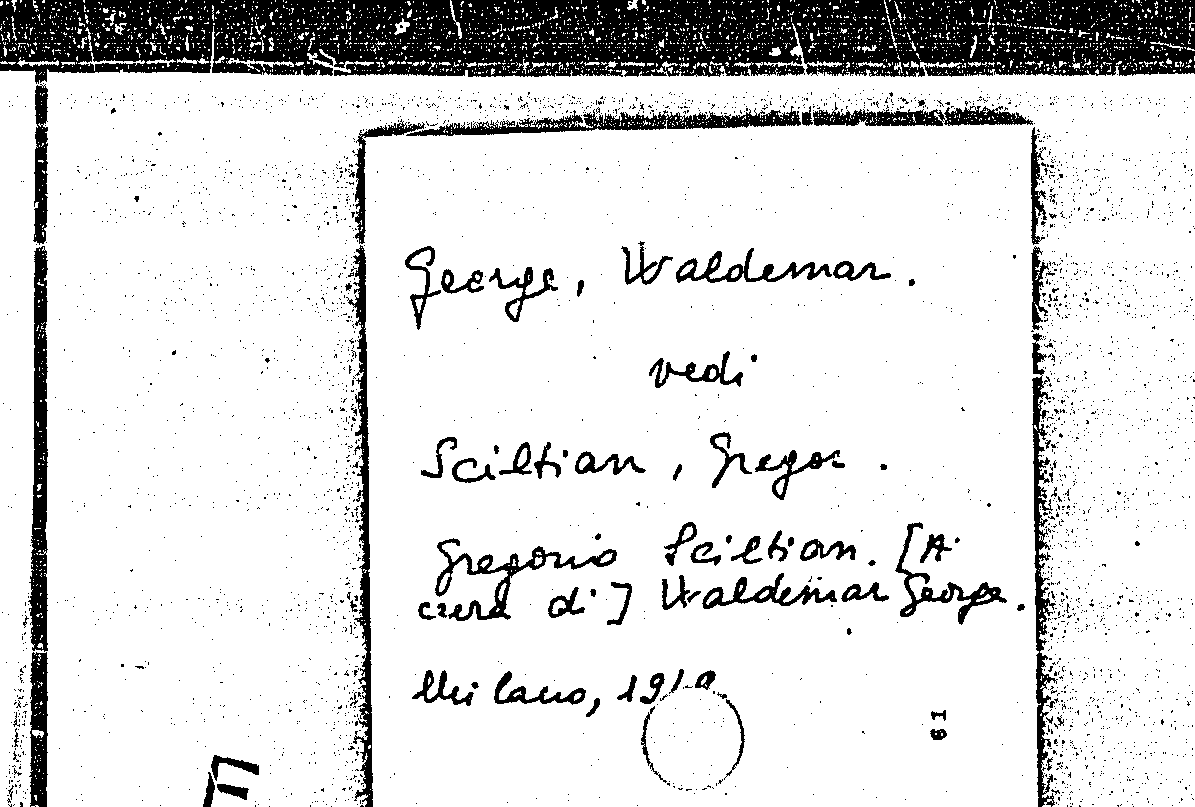 George, Waldemar.
vedi
Sciltian, Gregor.
Gregorio Sciltian. [A
cura di] Waldemar George.
Milano,
61